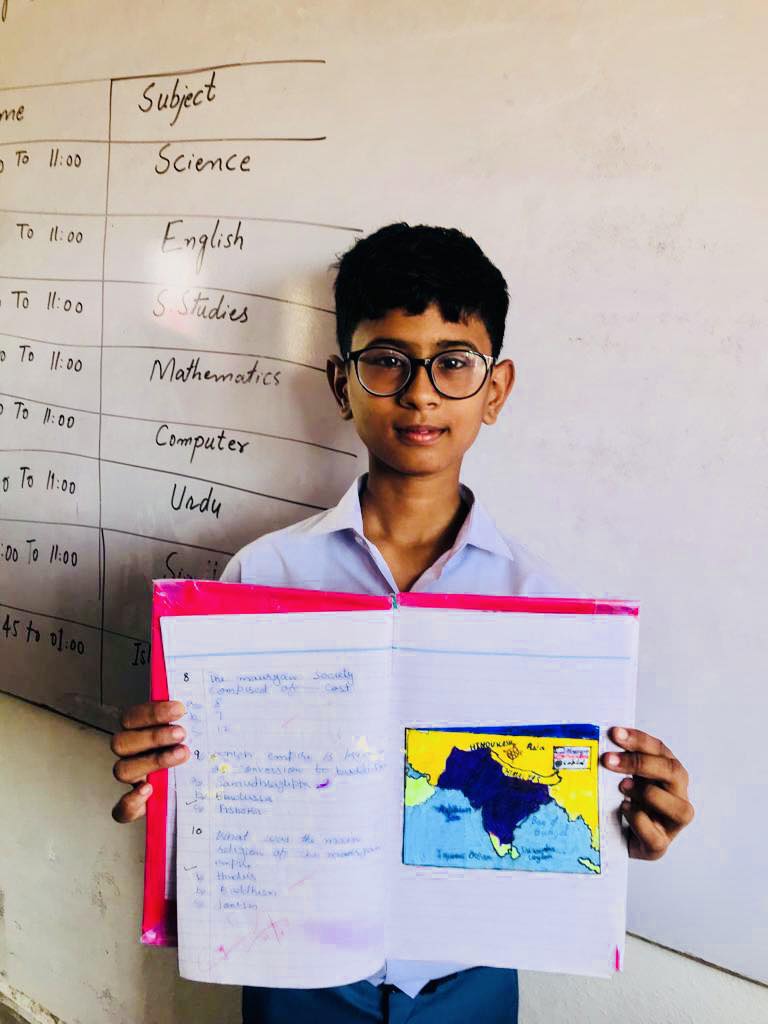 me
Subject
To 11:00
Science
To 11:00
English
To 11:00
S. Studies
To 11:00
Mathematics
To 11:00
Computer
To 11:00
Urdu
:00 To 11:00
45 to 01:00
Isl
8 The mauryan Society
Compised of Cast
8
7
12
9 empire is
as conversion to
b Bindussra
c Ashoka
10 What was the main
religion of the mauryan
empire
Hindus
b Buddhism
c Janism
HINDUKUSH Asia
HIMALYAS
Bay of
Bengal
Ocean